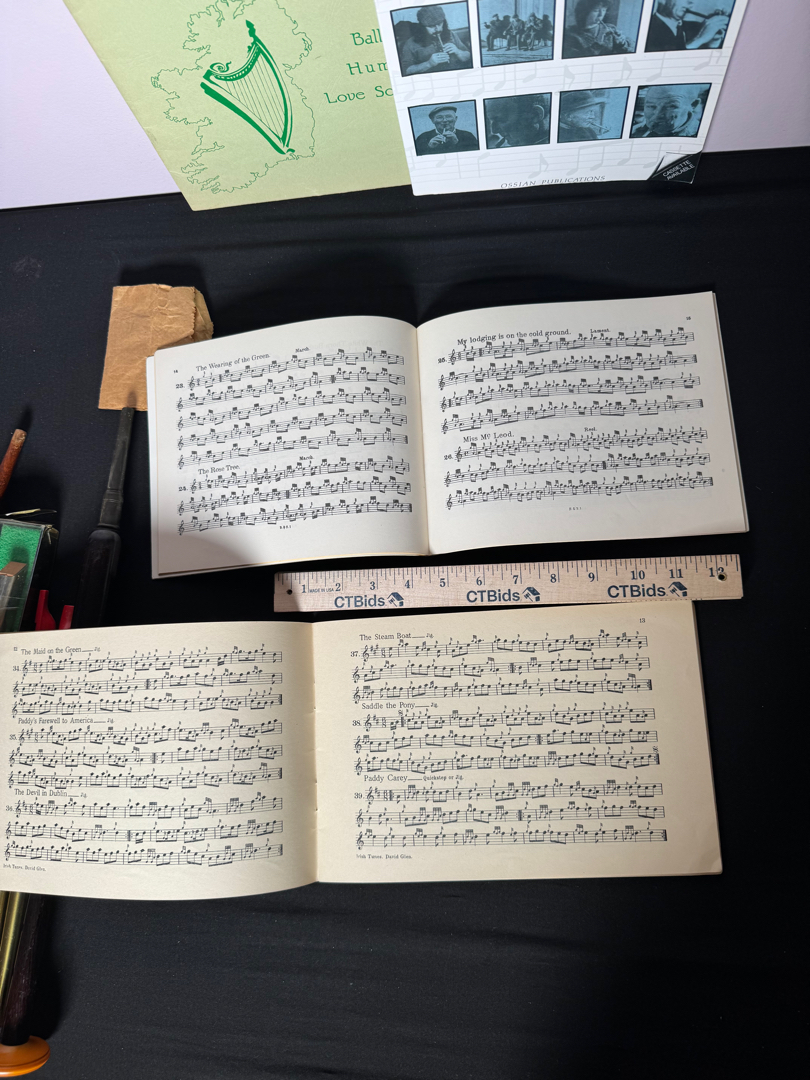 Ball
Hum
Love So
OSSIAN PUBLICATIONS
CASSETTE
AVAILABLE
14
The Wearing of the Green.
March.
23.
The Rose Tree.
March.
24.
My lodging is on the cold ground.
Lament.
25.
Miss Mc Leod.
Reel.
26.
1 MADE IN USA 2 3 4 5 6 7 8 9 10 11 12
CTBids CTBids CTBids
12
The Maid on the Green Jig.
34.
Paddy's Farewell to America Jig.
35.
The Devil in Dublin Jig.
36.
Irish Tunes. David Glen.
13
The Steam Boat Jig.
37.
Saddle the Pony Jig.
38.
Paddy Carey Quickstep or Jig.
39.
Irish Tunes. David Glen.